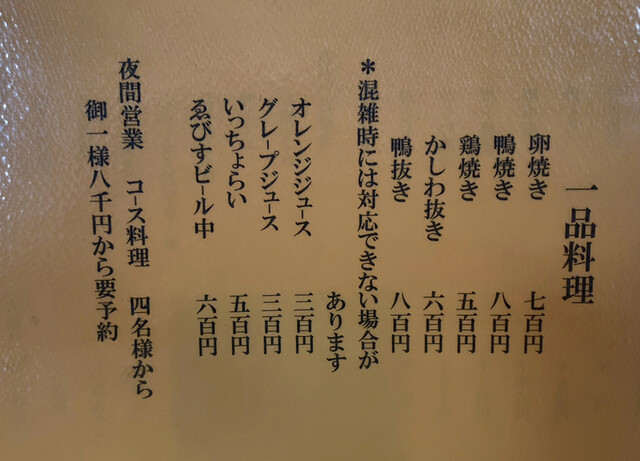 一品料理
卵焼き 七百円
鴨焼き 八百円
鶏焼き 五百円
かしわ抜き 六百円
鴨抜き 八百円
＊混雑時には対応できない場合が
あります
オレンジジュース 三百円
グレープジュース 三百円
いっちょらい 五百円
ゑびすビール中 六百円
夜間営業 コース料理 四名様から
御一様八千円から要予約